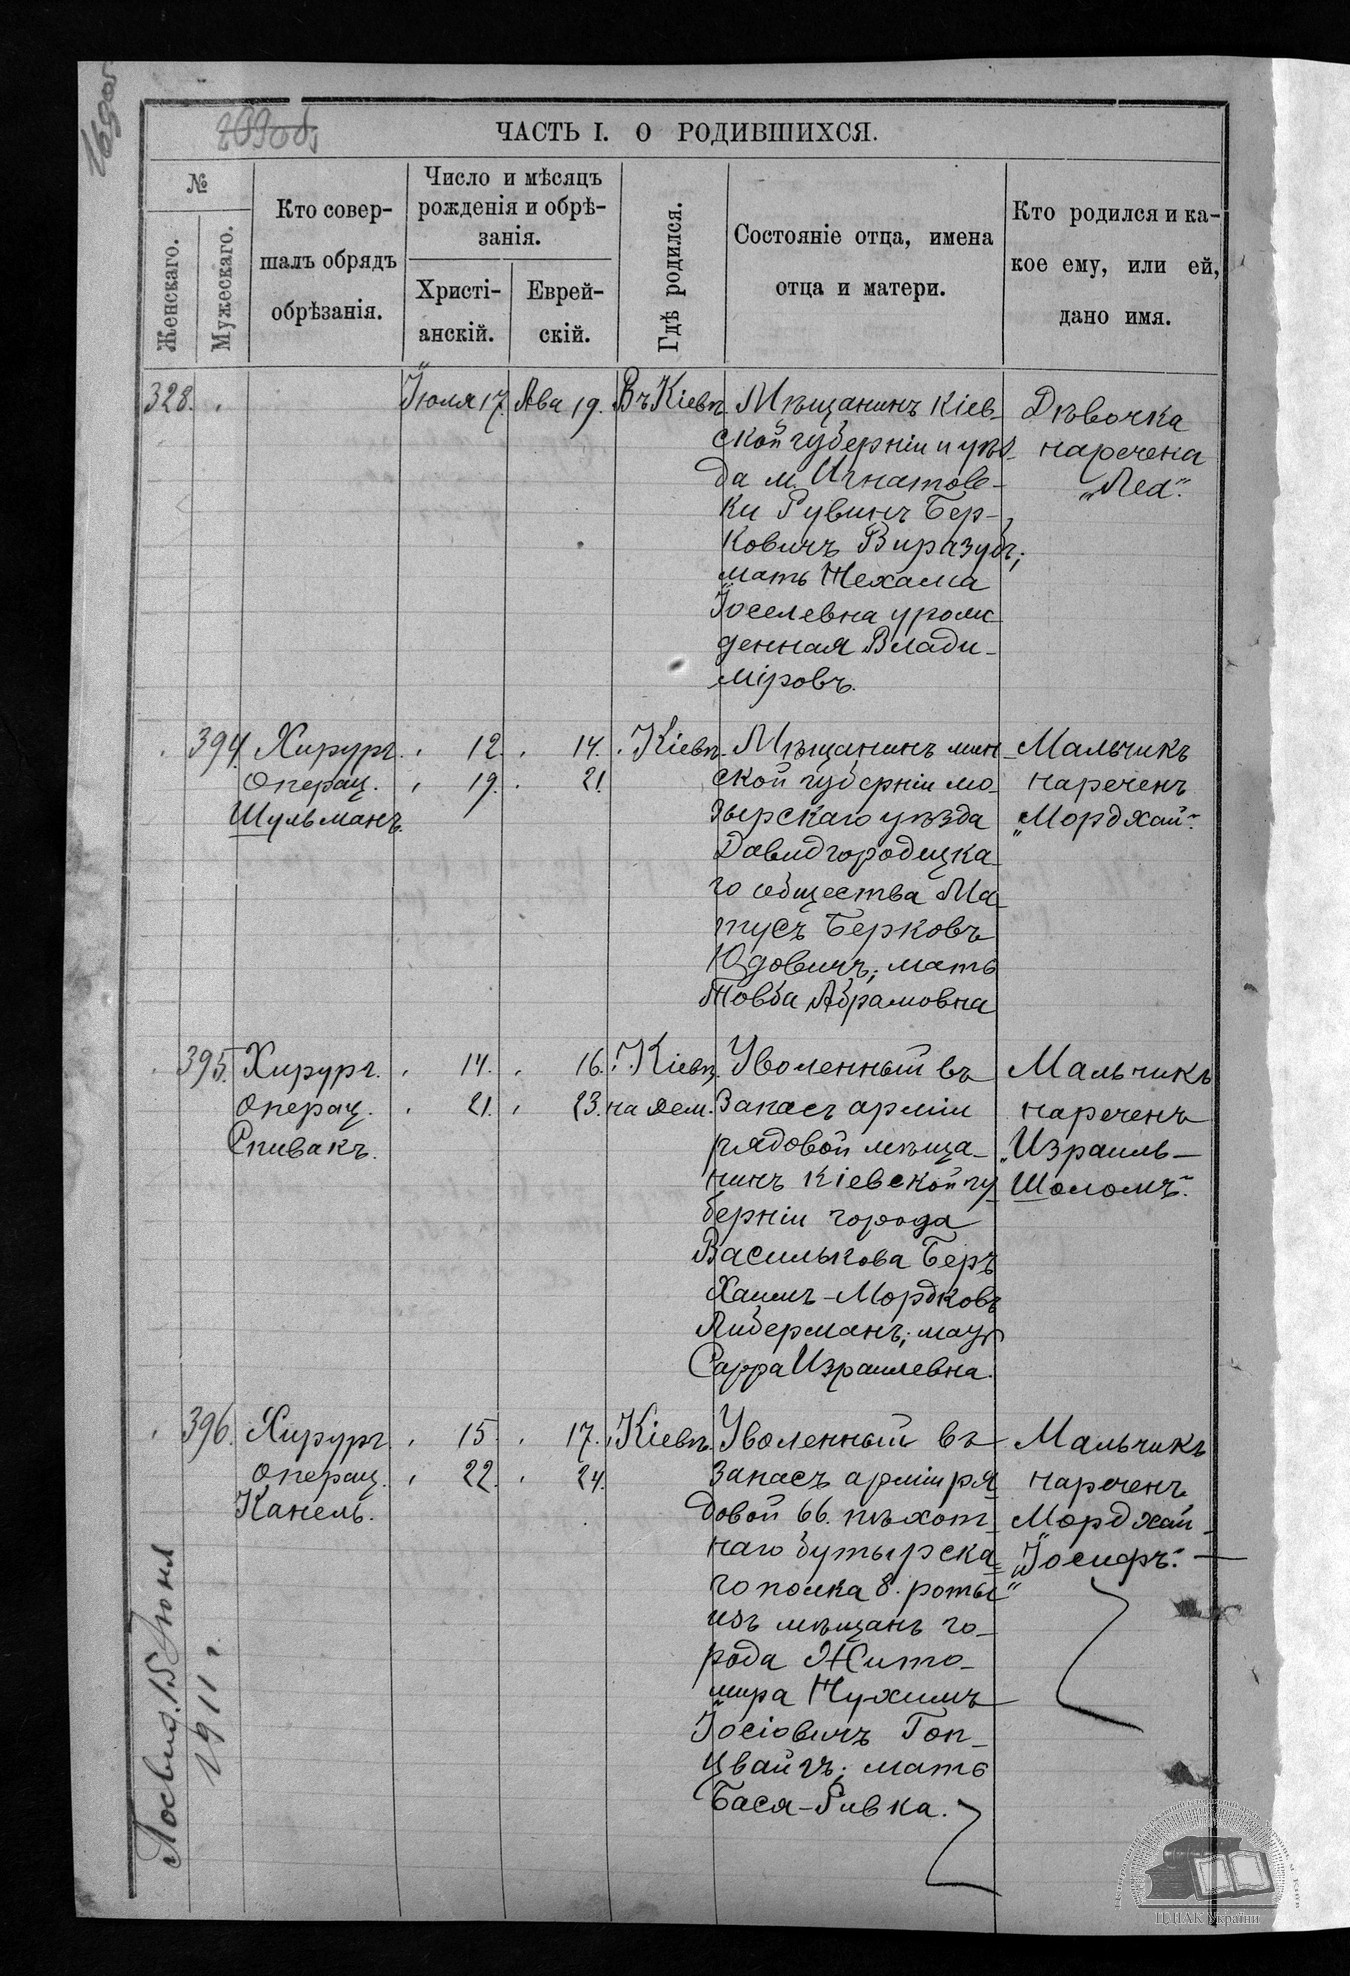 169об
299об
ЧАСТЬ I. О РОДИВШИХСЯ.
№
Женскаго.
Мужескаго.
Кто совер-
шалъ обрядъ
обрѣзанія.
Число и мѣсяцъ
рожденія и обрѣ-
занія.
Христі-
анскій.
Еврей-
скій.
Гдѣ родился.
Состояніе отца, имена
отца и матери.
Кто родился и ка-
кое ему, или ей,
дано имя.
328. Іюля 17. Ава 19. Въ Кіевѣ
Мѣщанинъ кіев-
ской губерніи и уѣз-
да м. Игнатов-
ки Рувинъ Бер-
ковичъ Виразубъ;
мать Нехама
Іоселевна урож-
денная Влади-
міровъ.
Дѣвочка
наречена
„Леа“.
394. Хирург.
Операц.
Шульманъ.
12. 14. Кіевѣ
19. 21.
Мѣщанинъ мин-
ской губерніи мо-
зырскаго уѣзда
Давидгородецка-
го общества Ма-
тусъ Берковъ
Юдовичъ; мать
Товба Абрамовна
Мальчикъ
нареченъ
„Мордхай“.
395. Хирург.
Операц.
Спивакъ.
14. 16. Кіевѣ,
21. 23. на Дем.
Уволенный въ
запасъ арміи
рядовой мѣща-
нинъ Кіевской гу-
берніи города
Василькова Беръ
Хаимъ-Мордковъ
Либерманъ; мать
Сарра Израилевна.
Мальчикъ
нареченъ
„Израиль-
Шоломъ“.
396. Хирург.
Операц.
Канель.
15. 17. Кіевѣ.
22. 24.
Уволенный въ
запасъ арміи ря-
довой 66. пѣхот-
наго бутырска-
го полка 8. роты
изъ мѣщанъ го-
рода Жито-
мира Нухимъ
Іосіовичъ Гоп-
цвайгъ; мать
Бася-Ривка.
Мальчикъ
нареченъ
Мордхай-
„Іосифъ“.
Посвид. 15 Іюня
1911 г.
ЦДІАК України